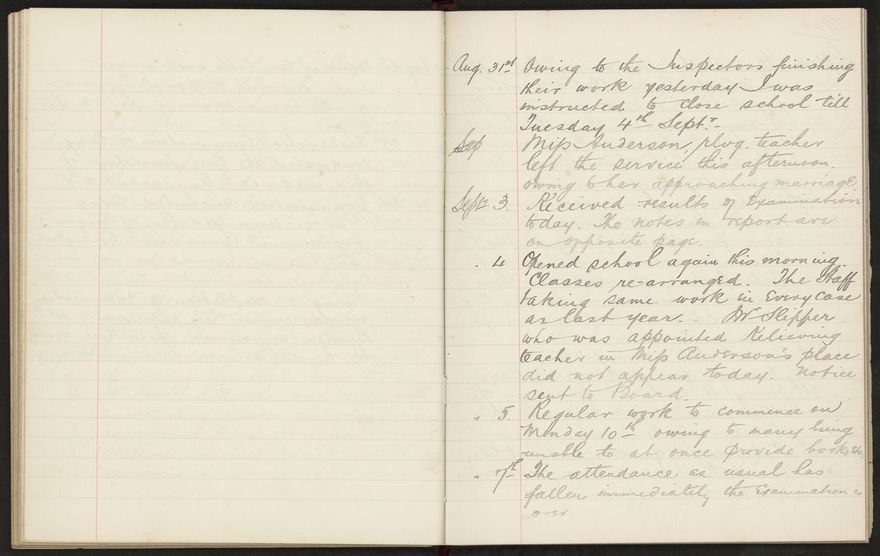 Aug. 31st Owing to the Inspectors finishing
their work yesterday I was
instructed to close school till
Tuesday 4th Sept.
Sep Miss Anderson, plvg. teacher
left the service this afternoon
owing to her approaching marriage.
Sept. 3. Received results of Examination
today. The notes in report are
on opposite page.
" 4 Opened school again this morning.
Classes re-arranged. The Staff
taking same work in every case
as last year. Mr Slipper
who was appointed Relieving
teacher in Miss Anderson's place
did not appear today. Notice
sent to Board.
" 5. Regular work to commence on
Monday 10th owing to many being
unable to at once provide books etc.
" 7th The attendance as usual has
fallen immediately the Examination is
over.